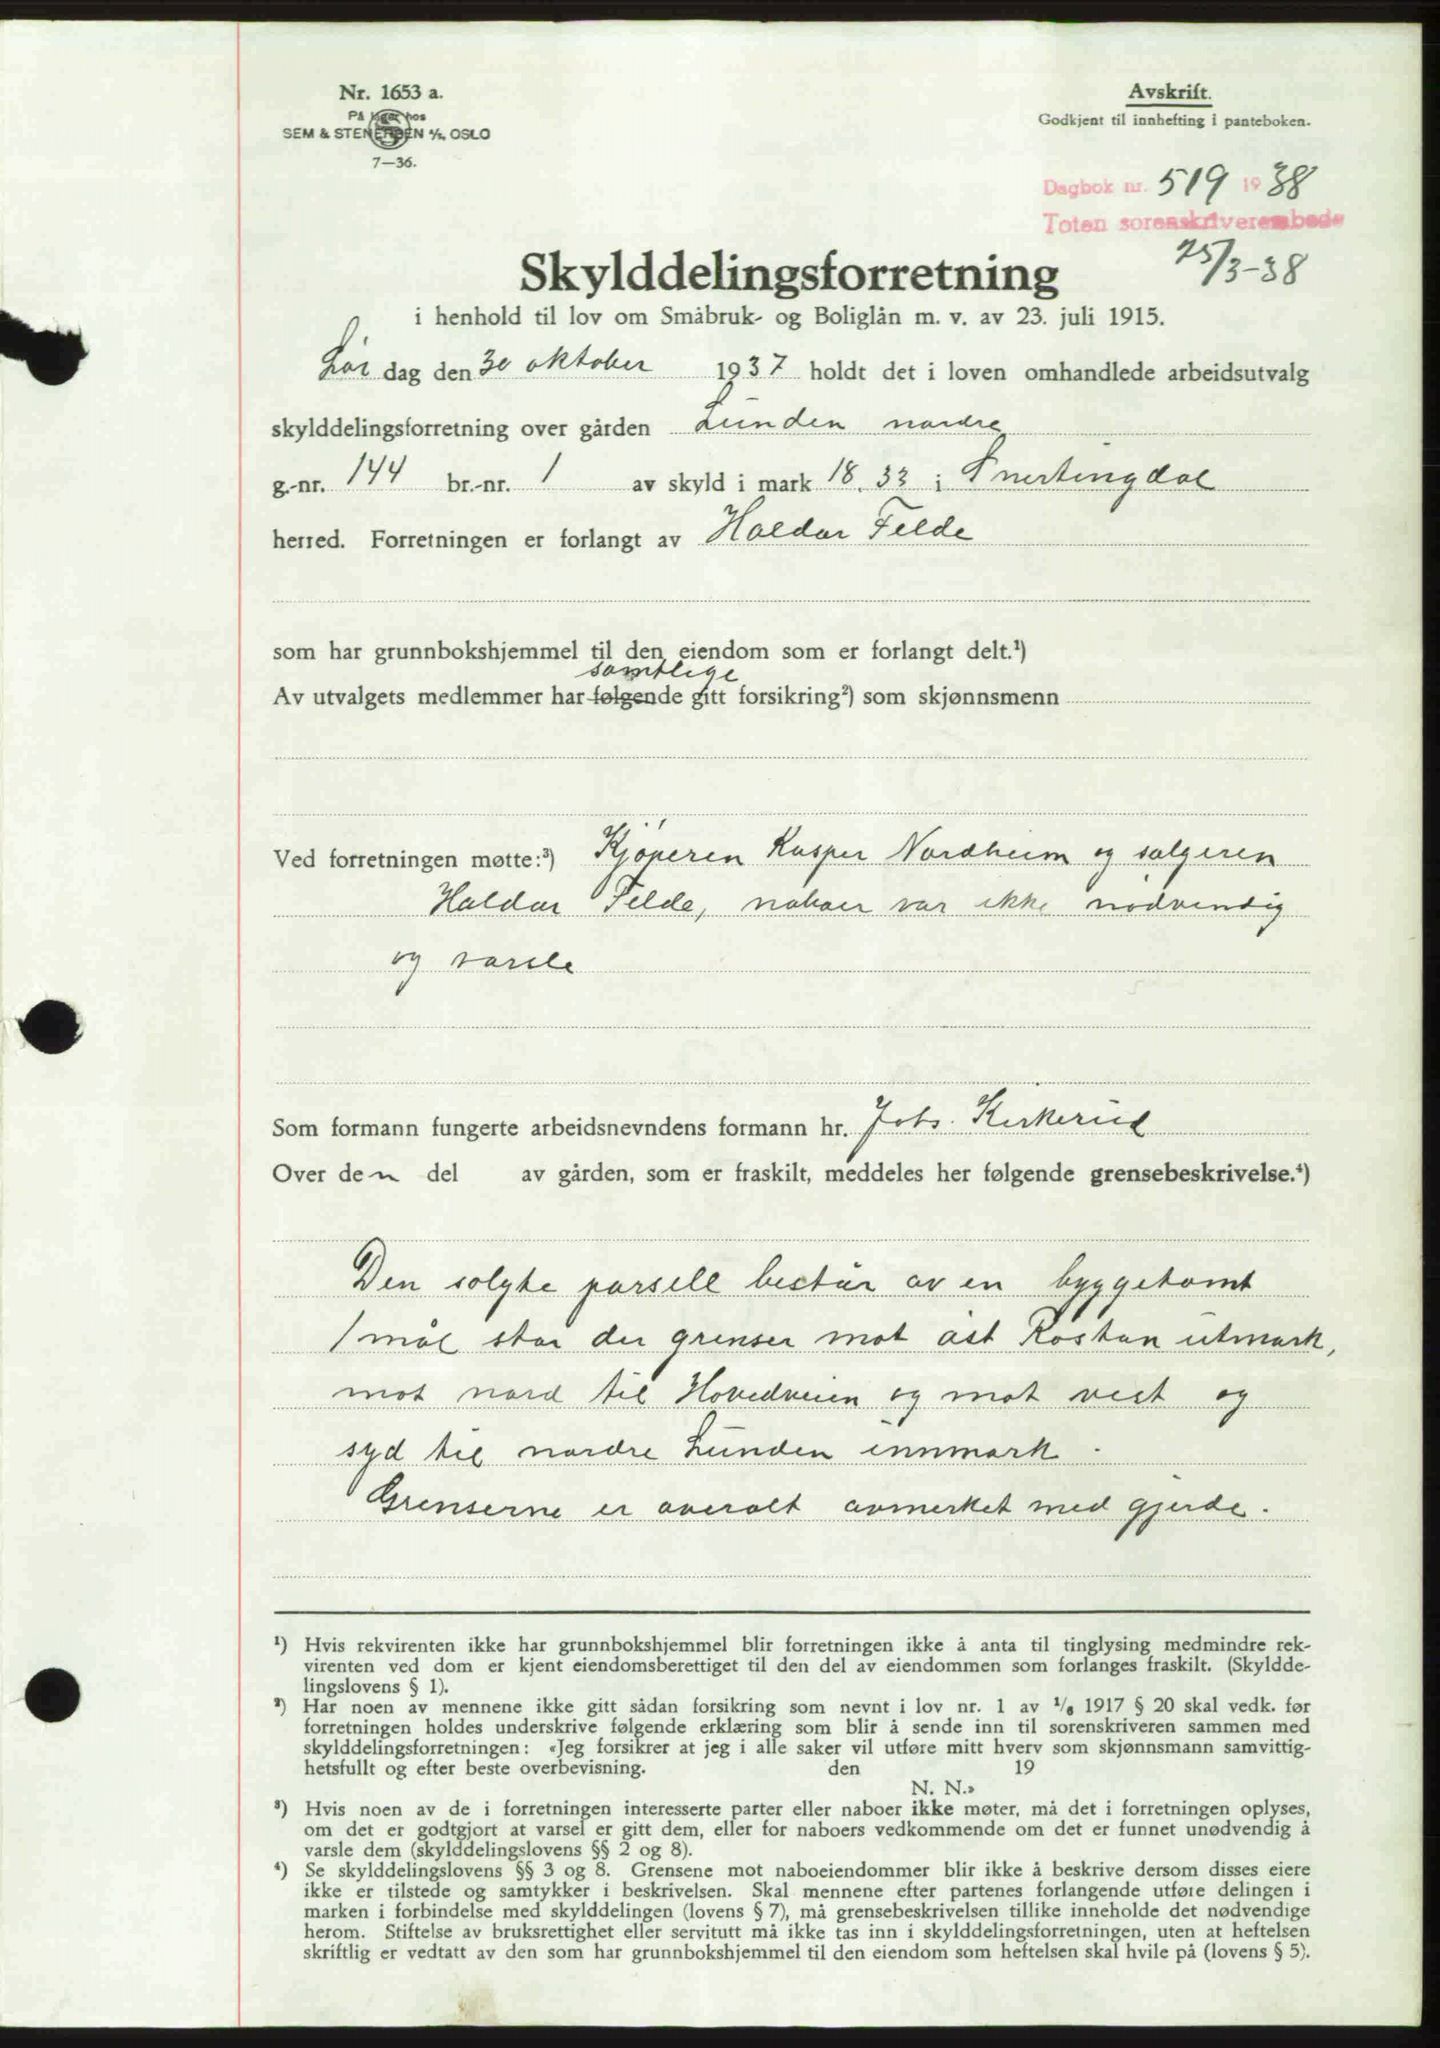 Nr. 1653 a.
På lager hos
SEM & STENERSEN A/S, OSLO
7—36.
Avskrift.
Godkjent til innhefting i panteboken.
Dagbok nr. 519 1938
Toten sorenskriverembede
25/3-38
Skylddelingsforretning
i henhold til lov om Småbruk- og Boliglån m. v. av 23. juli 1915.
Lør dag den 30 oktober 1937 holdt det i loven omhandlede arbeidsutvalg
skylddelingsforretning over gården Lunden nordre
g.-nr. 144 br.-nr. 1 av skyld i mark 18,33 i Snertingdal
herred. Forretningen er forlangt av Haldor Felde
som har grunnbokshjemmel til den eiendom som er forlangt delt.¹)
samtlige
Av utvalgets medlemmer har følgende gitt forsikring²) som skjønnsmenn
Ved forretningen møtte:³) Kjøperen Kasper Nordheim og selgeren
Haldor Felde, naboer var ikke nødvendig
og varsle
Som formann fungerte arbeidsnevndens formann hr. Johs. Kirkerud
Over den del av gården, som er fraskilt, meddeles her følgende grensebeskrivelse.⁴)
Den solgte parsell består av en byggetomt
1 mål stor der grenser mot øst Rostan utmark,
mot nord til Hovedveien og mot vest og
syd til nordre Lunden innmark.
Grenserne er overalt avmerket med gjerde.
¹) Hvis rekvirenten ikke har grunnbokshjemmel blir forretningen ikke å anta til tinglysing medmindre rek-
virenten ved dom er kjent eiendomsberettiget til den del av eiendommen som forlanges fraskilt. (Skyldde-
lingslovens § 1).
²) Har noen av mennene ikke gitt sådan forsikring som nevnt i lov nr. 1 av 1/6 1917 § 20 skal vedk. før
forretningen holdes underskrive følgende erklæring som blir å sende inn til sorenskriveren sammen med
skylddelingsforretningen: «Jeg forsikrer at jeg i alle saker vil utføre mitt hverv som skjønnsmann samvittig-
hetsfullt og efter beste overbevisning. den 19
N. N.»
³) Hvis noen av de i forretningen interesserte parter eller naboer ikke møter, må det i forretningen oplyses,
om det er godtgjort at varsel er gitt dem, eller for naboers vedkommende om det er funnet unødvendig å
varsle dem (skylddelingslovens §§ 2 og 8).
⁴) Se skylddelingslovens §§ 3 og 8. Grensene mot naboeiendommer blir ikke å beskrive dersom disses eiere
ikke er tilstede og samtykker i beskrivelsen. Skal mennene efter partenes forlangende utføre delingen i
marken i forbindelse med skylddelingen (lovens § 7), må grensebeskrivelsen tillike inneholde det nødvendige
herom. Stiftelse av bruksrettighet eller servitutt må ikke tas inn i skylddelingsforretningen, uten at heftelsen
skriftlig er vedtatt av den som har grunnbokshjemmel til den eiendom som heftelsen skal hvile på (lovens § 5).